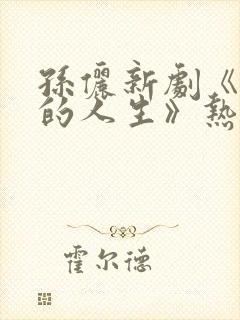 孫儷新劇《
的人生》熱
霍尔德